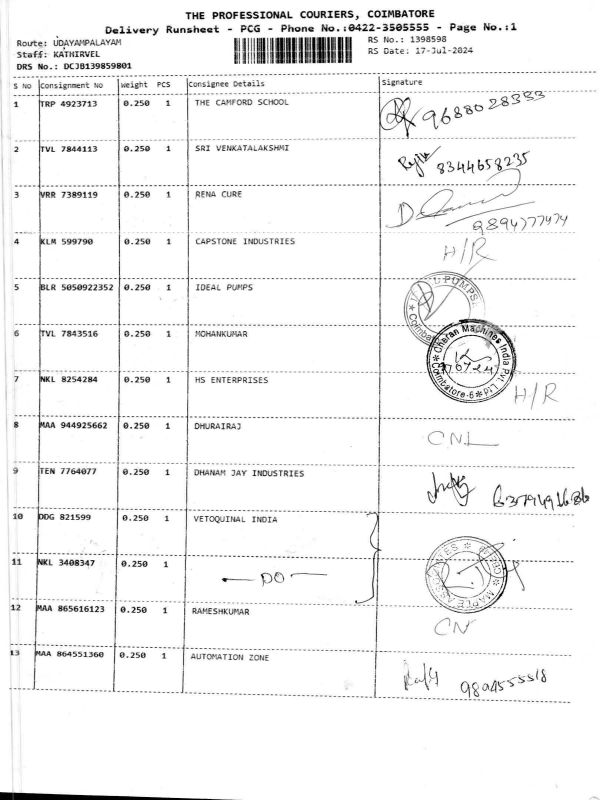 THE PROFESSIONAL COURIERS, COIMBATORE
Delivery Runsheet - PCG - Phone No.:0422-3505555 - Page No.:1
Route: UDAYAMPALAYAM RS No.: 1398598
Staff: KATHIRVEL RS Date: 17-Jul-2024
DRS No.: DCJB139859801
S No Consignment No Weight PCS Consignee Details Signature
1 TRP 4923713 0.250 1 THE CAMFORD SCHOOL 9688028333
2 TVL 7844113 0.250 1 SRI VENKATALAKSHMI 8344658235
3 VRR 7389119 0.250 1 RENA CURE
9894777474
4 KLM 599790 0.250 1 CAPSTONE INDUSTRIES H/R
5 BLR 5050922352 0.250 1 IDEAL PUMPS PUMPS
6 TVL 7843516 0.250 1 MOHANKUMAR Charan Machines India Pvt. Ltd. Coimbatore-6
7 NKL 8254284 0.250 1 HS ENTERPRISES H/R
8 MAA 944925662 0.250 1 DHURAIRAJ CNL
9 TEN 7764077 0.250 1 DHANAM JAY INDUSTRIES
10 DDG 821599 0.250 1 VETOQUINAL INDIA
11 NKL 3408347 0.250 1 - DO - MAPLE
12 MAA 865616123 0.250 1 RAMESHKUMAR CN
13 MAA 864551360 0.250 1 AUTOMATION ZONE 9894555518